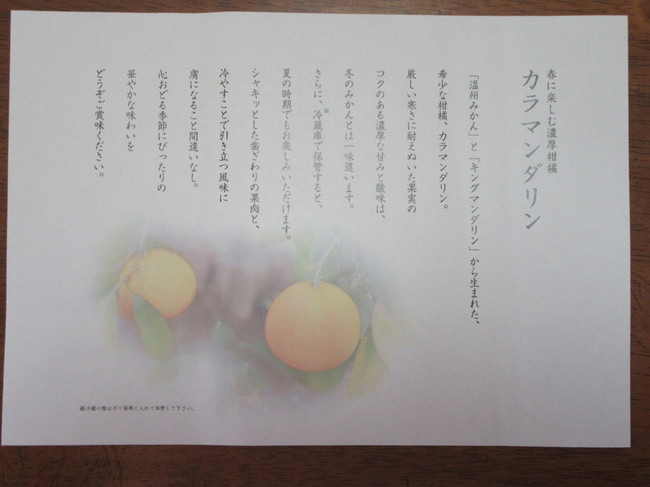 春に楽しむ濃厚柑橘
カラマンダリン
「温州みかん」と「キングマンダリン」から生まれた、
希少な柑橘、カラマンダリン。
厳しい寒さに耐えぬいた果実の
コクのある濃厚な甘みと酸味は、
冬のみかんとは一味違います。
さらに、冷蔵庫で保管すると、※
夏の時期でもお楽しみいただけます。
シャキッとした歯ざわりの果肉と、
冷やすことで引き立つ風味に
虜になること間違いなし。
心おどる季節にぴったりの
華やかな味わいを
どうぞご賞味ください。